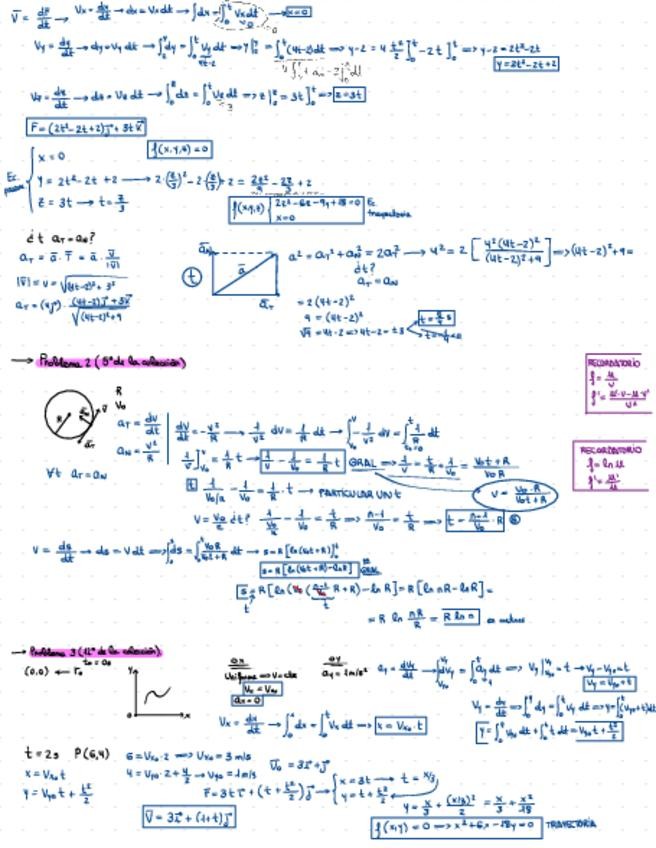 V̄ = dr̄/dt Vx = dx/dt → dx = Vx dt → ∫dx = ∫₀ᵗ Vx dt → x=0
Vy = dy/dt → dy = Vy dt → ∫₂ʸ dy = ∫₀ᵗ Vy dt → y]₂ʸ = ∫₀ᵗ (4t-2)dt → y-2 = 4 t²/2]₀ᵗ - 2t]₀ᵗ → y-2 = 2t²-2t
y = 2t²-2t+2
Vz = dz/dt → dz = Vz dt → ∫₀ᶻ dz = ∫₀ᵗ Vz dt → z]₀ᶻ = 3t]₀ᵗ → z=3t
r̄ = (2t²-2t+2)j̄ + 3t k̄
f(x,y,z)=0
x = 0
y = 2t²-2t+2 → 2·(z/3)² - 2·(z/3) + 2 = 2z²/9 - 2z/3 + 2
z = 3t → t = z/3
f(x,y,z) 2z²-6z-9y+18=0
x=0
Ec. trayectoria
¿t aT = aN?
aT = ā · T̄ = ā · v̄/|v̄|
|v̄| = v = √((4t-2)²+3²)
aT = (4j̄) · ((4t-2)j̄+3k̄)/√((4t-2)²+9)
a² = aT² + aN² = 2aT² → 4² = 2 [4²(4t-2)²/((4t-2)²+9)] ⇒ (4t-2)²+9 =
¿t?
aT = aN
= 2(4t-2)²
9 = (4t-2)²
√9 = 4t-2 ⇒ 4t-2 = ±3
→ Problema 2 (5º de la colección)
RECORDATORIO
RECORDATORIO
f = ln u
f' = u'/u
R
V₀
aT = dv/dt
aN = v²/R
∀t aT = aN
dv/dt = -v²/R → 1/v² dv = 1/R dt → ∫ -1/v² dv = ∫ 1/R dt
1/v]ᵥ₀ᵛ = 1/R t → 1/v - 1/v₀ = 1/R t GRAL ⇒ 1/v = t/R + 1/v₀ = (v₀t+R)/(v₀R)
v = v₀·R/(v₀t+R)
1/(v₀/n) - 1/v₀ = 1/R · t → PARTICULAR UN t
⇒ (n-1)/v₀ = t/R ⇒ t = (n-1)/v₀ · R
V = ds/dt → ds = V dt ⇒ ∫₀ˢ ds = ∫₀ᵗ v₀R/(v₀t+R) dt → s = R[ln(v₀t+R)]₀ᵗ
s = R[ln(v₀t+R)-lnR] GRAL
s = R[ln(v₀((n-1)/v₀ R)+R)-ln R] = R[ln nR - ln R] =
= R ln nR/R = R ln n
→ Problema 3 (12º de la colección)
(0,0) ← r₀
OX
Uniforme ⇒ v=cte
Vx = Vx₀
ax = 0
OY
ay = 1m/s²
ay = dVy/dt → ∫dVy = ∫₀ᵗ ay dt ⇒ Vy]ᵥy₀ = t → Vy-Vy₀ = t
Vy = Vy₀+t
Vx = dx/dt → ∫₀ˣ dx = ∫₀ᵗ Vx dt → x = Vx₀·t
Vy = dy/dt ⇒ ∫₀ʸ dy = ∫₀ᵗ Vy dt ⇒ y = ∫₀ᵗ (Vy₀+t)dt
y = ∫₀ᵗ Vy₀ dt + ∫₀ᵗ t dt = Vy₀t + t²/2
t = 2s P(6,4)
x = Vx₀t
y = Vy₀t + t²/2
6 = Vx₀·2 → Vx₀ = 3 m/s
4 = Vy₀·2 + 4/2 → Vy₀ = 1 m/s
V̄₀ = 3ī+j̄
r̄ = 3t ī + (t + t²/2) j̄ →
x = 3t → t = x/3
y = t + t²/2
y = x/3 + (x/3)²/2 = x/3 + x²/18
V̄ = 3ī + (1+t)j̄
f(x,y) = 0 ⇒ x²+6x-18y=0 TRAYECTORIA